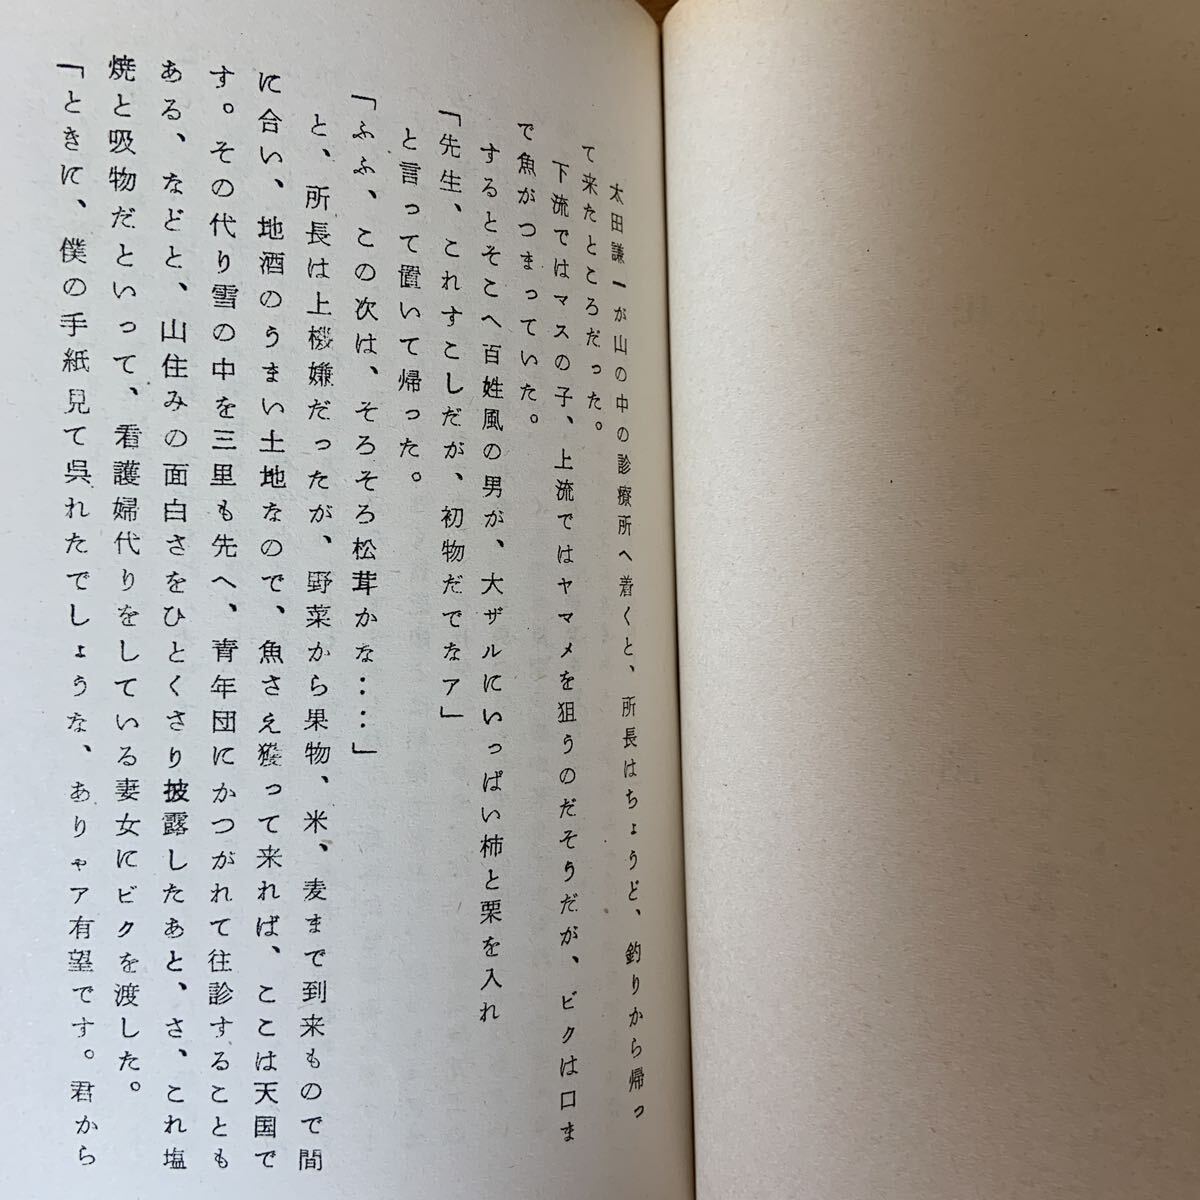 太田謙一が山の中の診療所へ着くと、所長はちょうど、釣りから帰っ
て来たところだった。
下流ではマスの子、上流ではヤマメを狙うのだそうだが、ビクは口ま
で魚がつまっていた。
するとそこへ百姓風の男が、大ザルにいっぱい柿と栗を入れ
「先生、これすこしだが、初物だでなア」
と言って置いて帰った。
「ふふ、この次は、そろそろ松茸かな……」
と、所長は上機嫌だったが、野菜から果物、米、麦まで到来もので間
に合い、地酒のうまい土地なので、魚さえ獲って来れば、ここは天国で
す。その代り雪の中を三里も先へ、青年団にかつがれて往診することも
ある、などと、山住みの面白さをひとくさり披露したあと、さ、これ塩
焼と吸物だといって、看護婦代りをしている妻女にビクを渡した。
「ときに、僕の手紙見て呉れたでしょうな、ありゃア有望です。君から